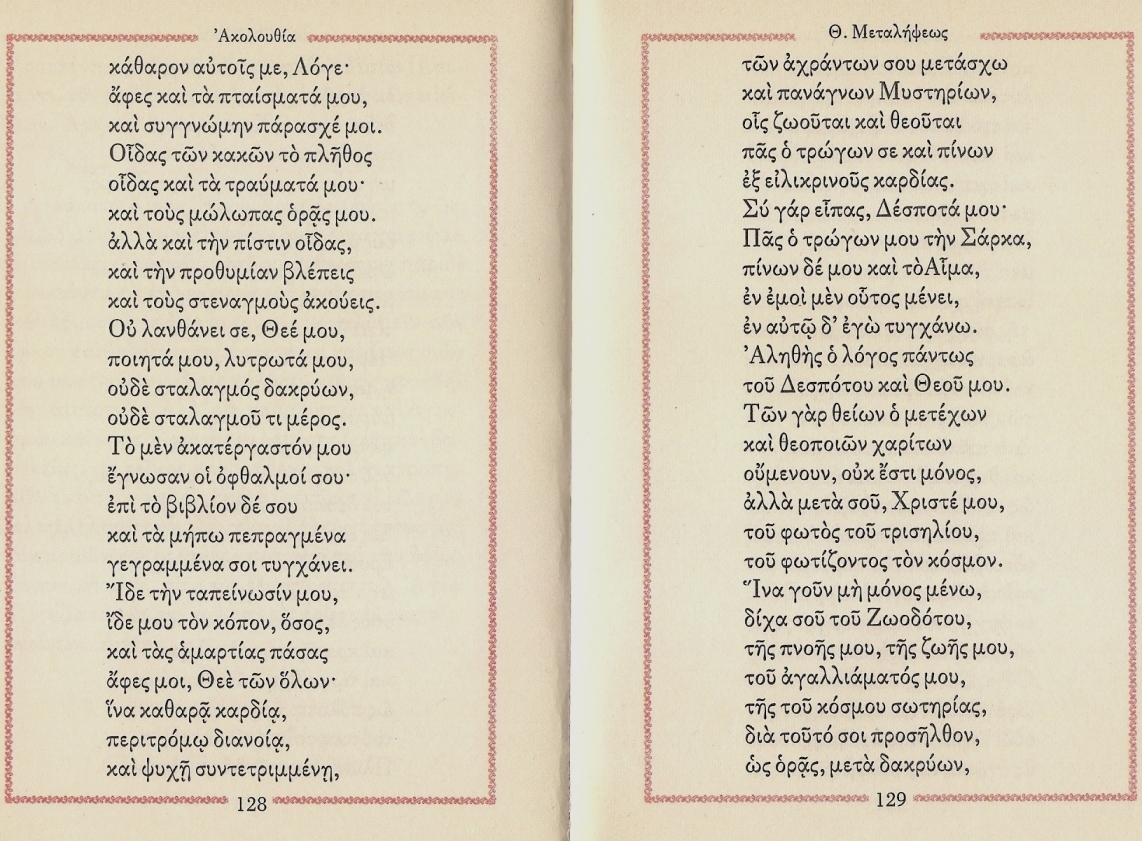 Ἀκολουθία
κάθαρον αὐτοῖς με, Λόγε·
ἄφες καὶ τὰ πταίσματά μου,
καὶ συγγνώμην πάρασχέ μοι.
Οἶδας τῶν κακῶν τὸ πλῆθος
οἶδας καὶ τὰ τραύματά μου·
καὶ τοὺς μώλωπας ὁρᾷς μου.
ἀλλὰ καὶ τὴν πίστιν οἶδας,
καὶ τὴν προθυμίαν βλέπεις
καὶ τοὺς στεναγμοὺς ἀκούεις.
Οὐ λανθάνει σε, Θεέ μου,
ποιητά μου, λυτρωτά μου,
οὐδὲ σταλαγμός δακρύων,
οὐδὲ σταλαγμοῦ τι μέρος.
Τὸ μὲν ἀκατέργαστόν μου
ἔγνωσαν οἱ ὀφθαλμοί σου·
ἐπὶ τὸ βιβλίον δέ σου
καὶ τὰ μήπω πεπραγμένα
γεγραμμένα σοι τυγχάνει.
Ἴδε τὴν ταπείνωσίν μου,
ἴδε μου τὸν κόπον, ὅσος,
καὶ τὰς ἁμαρτίας πάσας
ἄφες μοι, Θεὲ τῶν ὅλων·
ἵνα καθαρᾷ καρδίᾳ,
περιτρόμῳ διανοίᾳ,
καὶ ψυχῇ συντετριμμένῃ,
128
Θ. Μεταλήψεως
τῶν ἀχράντων σου μετάσχω
καὶ πανάγνων Μυστηρίων,
οἷς ζωοῦται καὶ θεοῦται
πᾶς ὁ τρώγων σε καὶ πίνων
ἐξ εἰλικρινοῦς καρδίας.
Σύ γάρ εἶπας, Δέσποτά μου·
Πᾶς ὁ τρώγων μου τὴν Σάρκα,
πίνων δέ μου καὶ τὸΑἷμα,
ἐν ἐμοὶ μὲν οὗτος μένει,
ἐν αὐτῷ δ’ ἐγὼ τυγχάνω.
Ἀληθὴς ὁ λόγος πάντως
τοῦ Δεσπότου καὶ Θεοῦ μου.
Τῶν γὰρ θείων ὁ μετέχων
καὶ θεοποιῶν χαρίτων
οὔμενουν, οὐκ ἔστι μόνος,
ἀλλὰ μετὰ σοῦ, Χριστέ μου,
τοῦ φωτὸς τοῦ τρισηλίου,
τοῦ φωτίζοντος τὸν κόσμον.
Ἵνα γοῦν μὴ μόνος μένω,
δίχα σοῦ τοῦ Ζωοδότου,
τῆς πνοῆς μου, τῆς ζωῆς μου,
τοῦ ἀγαλλιάματός μου,
τῆς τοῦ κόσμου σωτηρίας,
διὰ τοῦτό σοι προσῆλθον,
ὡς ὁρᾷς, μετὰ δακρύων,
129